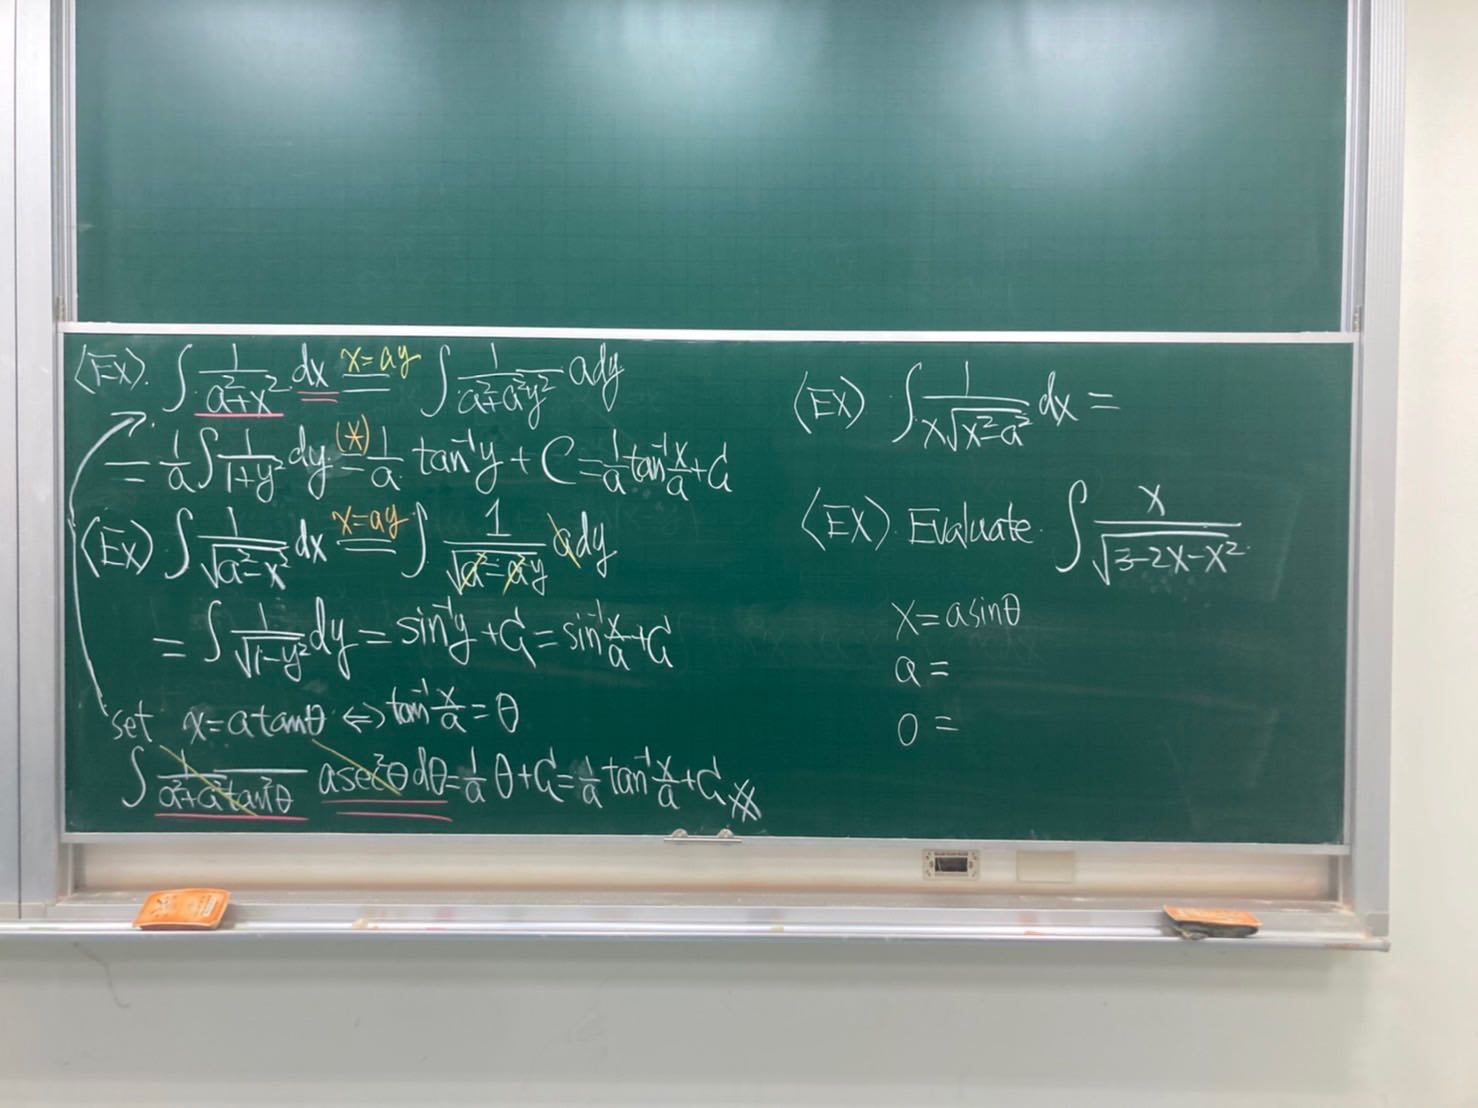 (Ex). ∫ 1/(a²+x²) dx x=ay = ∫ 1/(a²+a²y²) ady
= 1/a ∫ 1/(1+y²) dy (*)= 1/a tan⁻¹y + C = 1/a tan⁻¹ x/a + C
(Ex) ∫ 1/√(a²-x²) dx x=ay = ∫ 1/√(a²-a²y) ady
= ∫ 1/√(1-y²) dy = sin⁻¹y + C = sin⁻¹ x/a + C
set x=atanθ ⇔ tan⁻¹ x/a = θ
∫ 1/(a²+a²tan²θ) asec²θ dθ = 1/a θ + C = 1/a tan⁻¹ x/a + C
(Ex) ∫ 1/(x√(x²-a²)) dx =
(Ex). Evaluate. ∫ x/√(3-2x-x²)
x=asinθ
a =
0 =